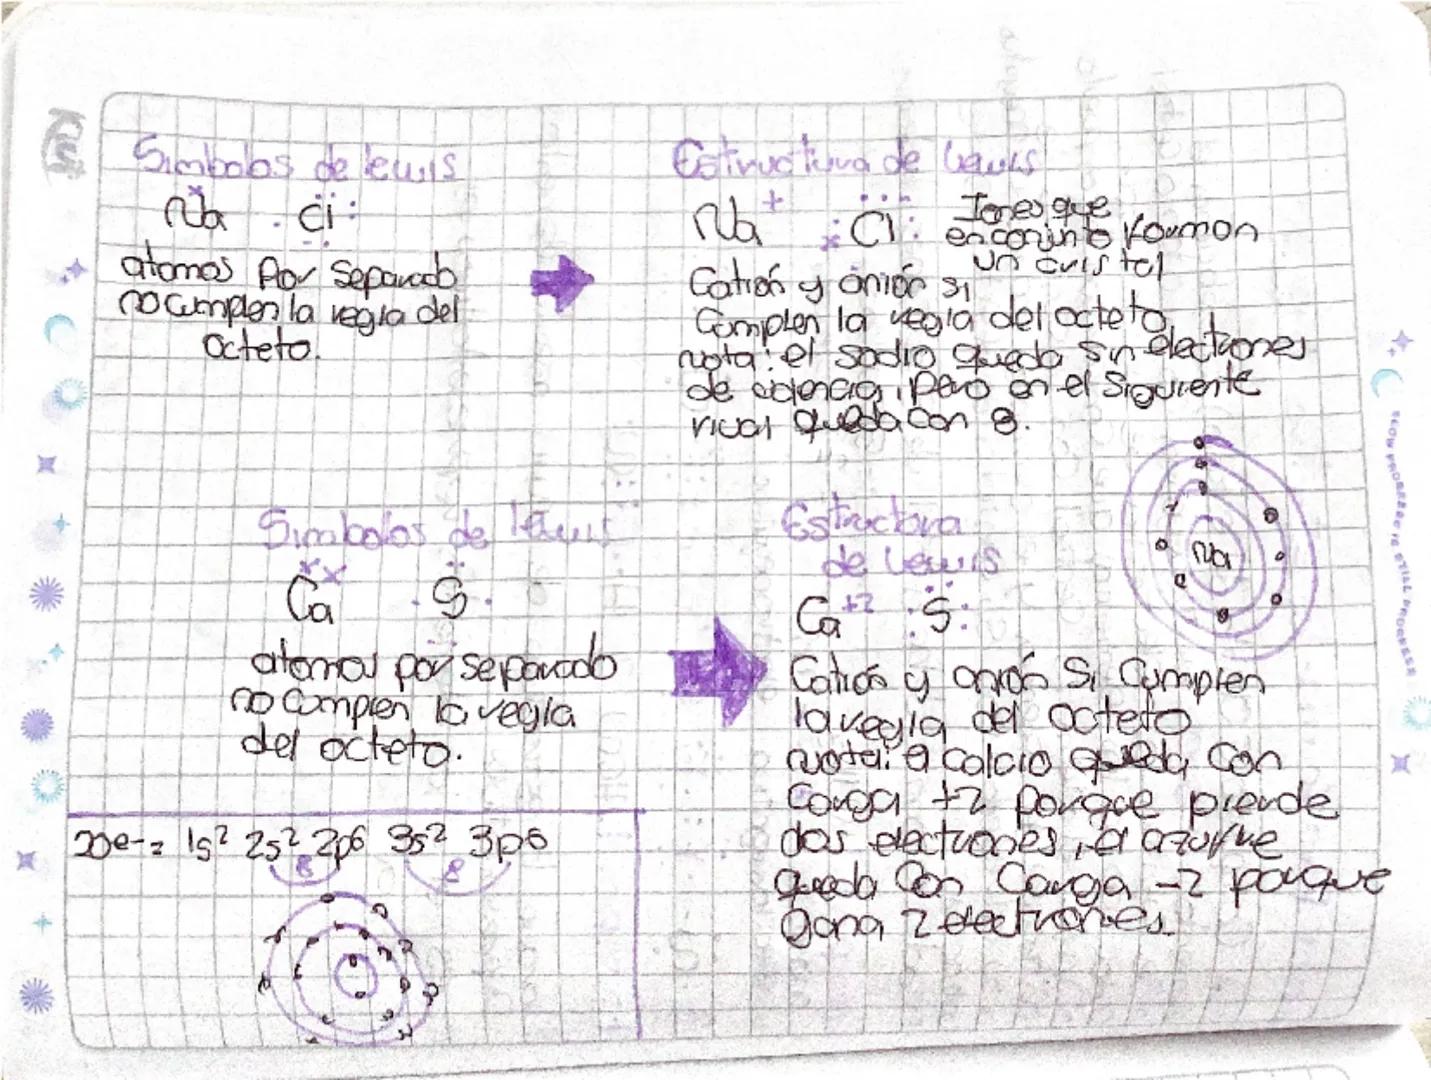 Simbolos de lewis
Na Cl
atomos por separado
no cumplen la regla del
octeto.
Estructura de Lewis
Na + Cl Iones que
en conjunto forman
un cristal
Catión y anión si
cumplen la regla del octeto
nota: el sodio queda sin electrones
de valencia, pero en el siguiente
nival queda con 8.
Na
Simbolos de lewis
Ca S
atomos por separado
no complen la regla
del octeto.
Estructura
de Lewis
Ca +2 S
Catión y anión Si Cumplen
la regla del octeto
nota: el calcio queda con
carga +2 porque pierde
dos electrones, el azufre
queda con carga -2 porque
gana 2 electrones.
20e-= 1s² 2s² 2p6 3s² 3p6
8 8
GROW PROGRESS IS STILL PROGRESS